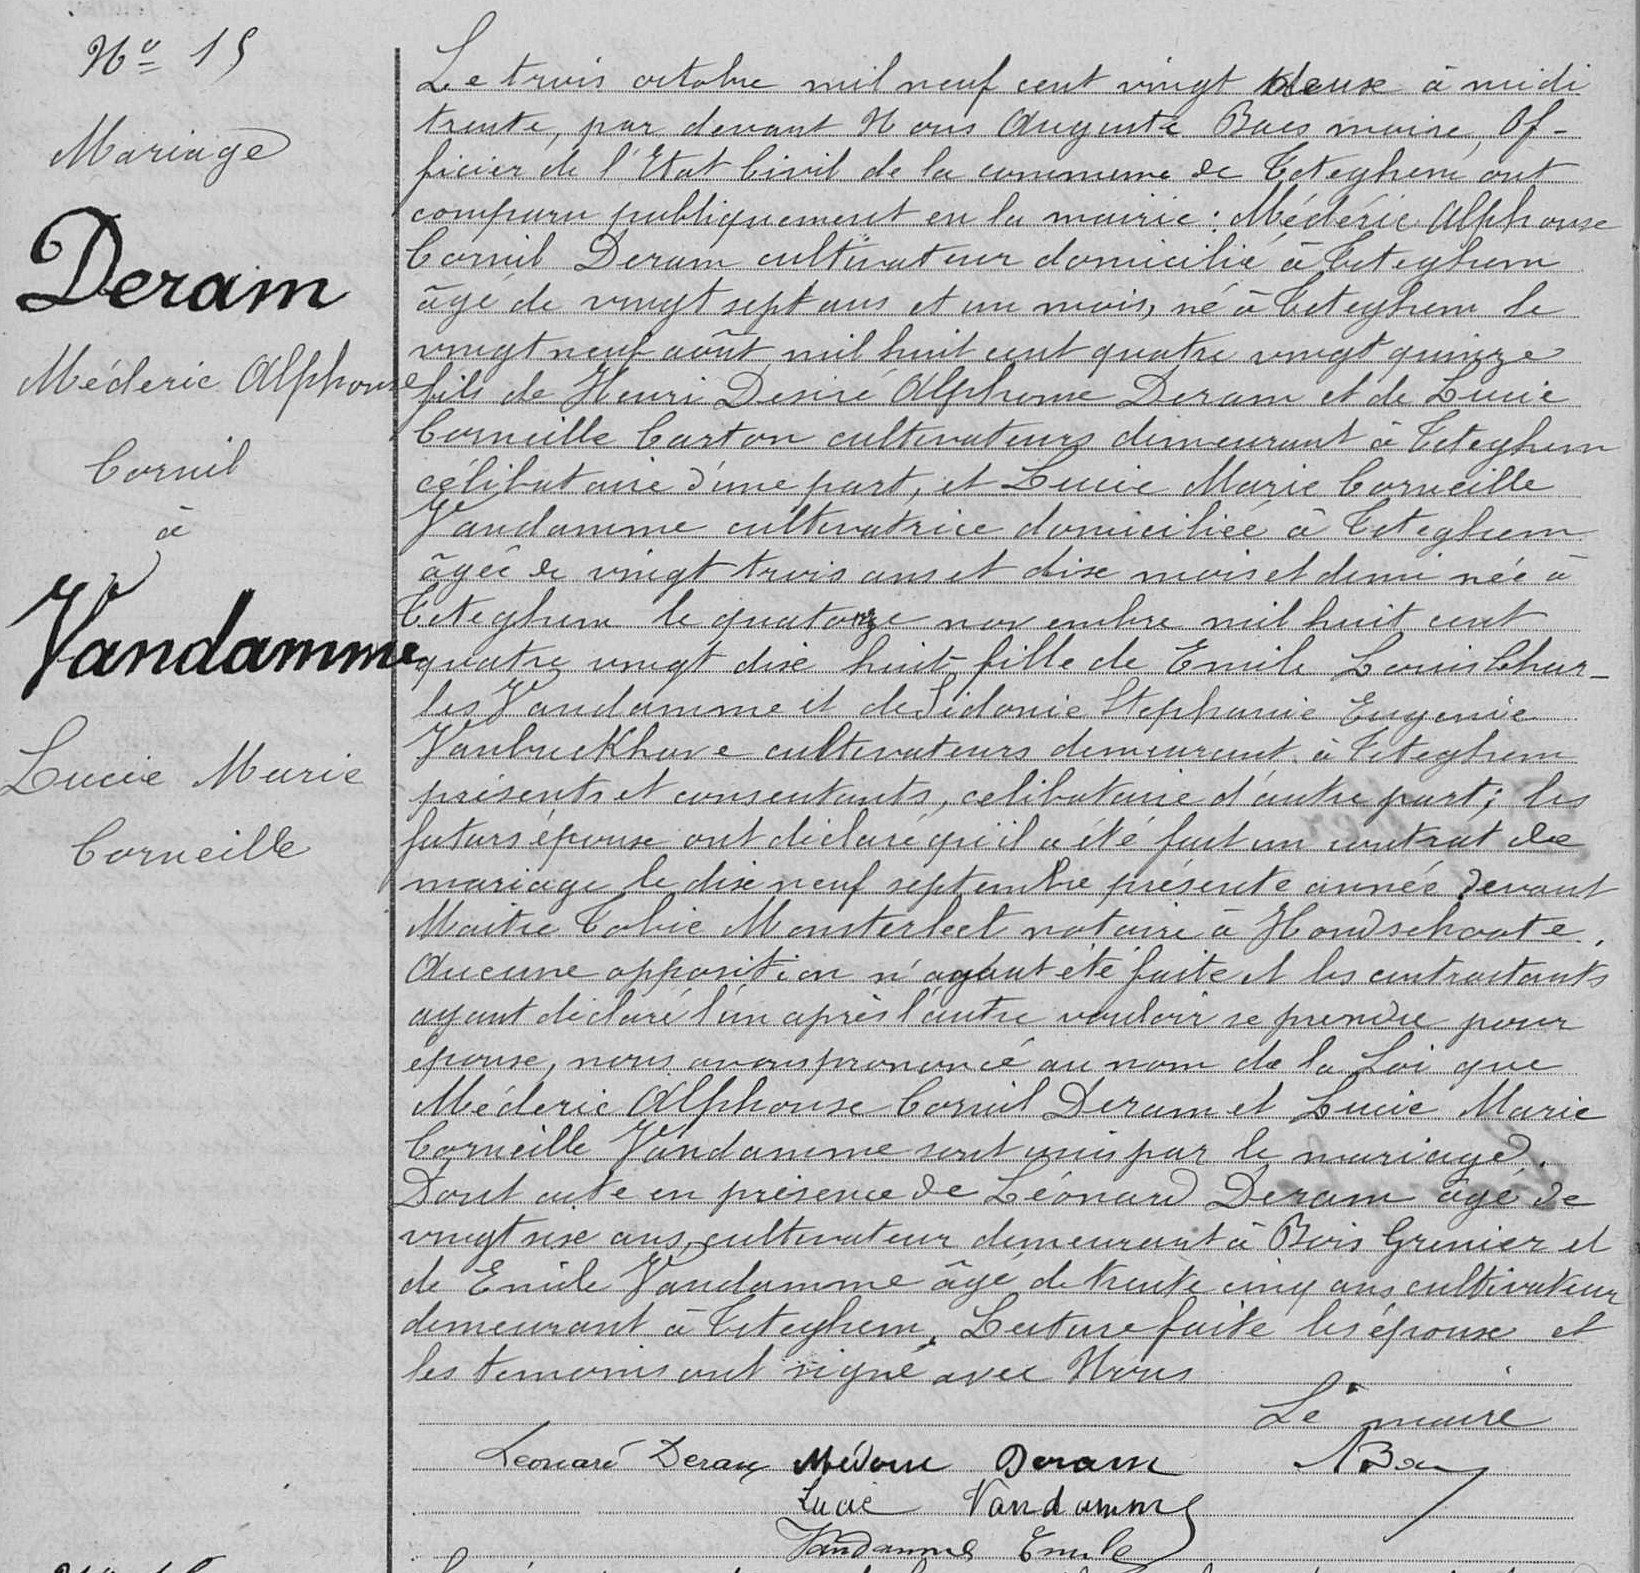 No 15
Mariage
Deram
Méderic Alphonse
Cornil
à
Vandamme
Lucie Marie
Corneille
Le trois octobre mil neuf cent vingt deux à midi
trente, par devant Nous Auguste Baes maire, Of-
ficier de l'Etat Civil de la commune de Téteghem ont
comparu publiquement en la mairie : Médéric Alphonse
Cornil Deram cultivateur domicilié à Téteghem
âgé de vingt sept ans et un mois, né à Téteghem le
vingt neuf août mil huit cent quatre vingt quinze
fils de Henri Desiré Alphonse Deram et de Lucie
Corneille Carton cultivateurs demeurant à Téteghem
célibataire d'une part, et Lucie Marie Corneille
Vandamme cultivatrice domiciliée à Téteghem
âgée de vingt trois ans et dix mois et demi née à
Téteghem le quatorze novembre mil huit cent
quatre vingt dix huit fille de Emile Louis Char-
les Vandamme et de Sidonie Stephanie Eugenie
Vanbuckhave cultivateurs demeurant à Téteghem
présents et consentants, celibataire d'autre part; les
futurs époux ont déclaré qu'il a été fait un contrat de
mariage le dix neuf septembre présente année devant
Maitre Tobie Monsterleet notaire à Hondschoote.
Aucune opposition n'ayant été faite et les contractants
ayant déclaré l'un après l'autre vouloir se prendre pour
époux, nous avons prononcé au nom de la Loi que
Méderic Alphonse Cornil Deram et Lucie Marie
Corneille Vandamme sont unis par le mariage.
Dont acte en présence de Léonard Deram âgé de
vingt six ans, cultivateur demeurant à Bois Grenier et
de Emile Vandamme âgé de trente cinq ans cultivateur
demeurant à Téteghem. Lecture faite les époux et
les temoins ont signé avec Nous
Le maire
Leonard Deram Médéric Deram ABaes
Lucie Vandamme
Vandamme Emile